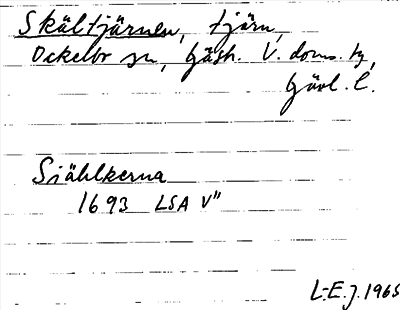 Skältjärnen, tjärn,
Ockelbo sn, Gästr. V. doms. tg,
Gävl. l.
Siählkerna
1693 LSA V"
L-E.J. 1965